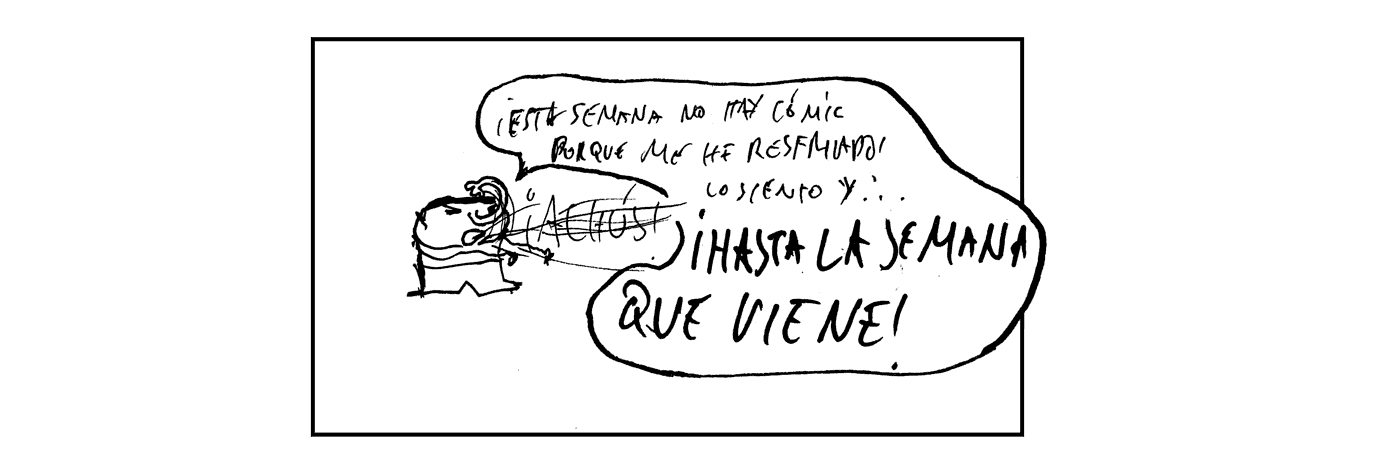 ¡ESTA SEMANA NO HAY CÓMIC
PORQUE ME HE RESFRIADO!
LO SIENTO Y...
¡ACHÚS!
¡HASTA LA SEMANA
QUE VIENE!